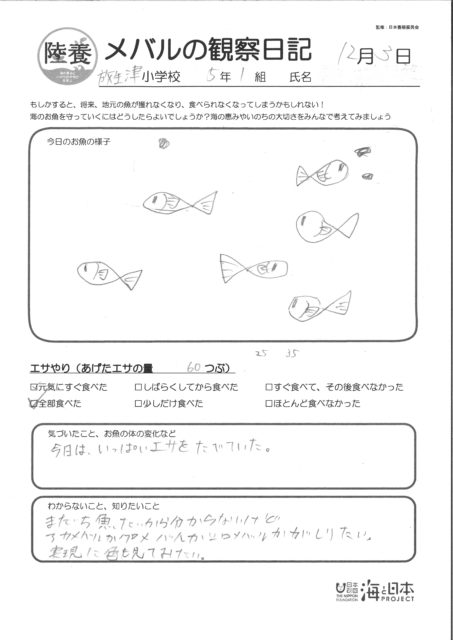 監修：日本養殖振興会
陸養 メバルの観察日記 12月3日
放生津小学校 5年 1組 氏名
もしかすると、将来、地元の魚が獲れなくなり、食べられなくなってしまうかもしれない！
海のお魚を守っていくにはどうしたらよいでしょうか？海の恵みやいのちの大切さをみんなで考えてみましょう
今日のお魚の様子
25 35
エサやり（あげたエサの量 60 つぶ）
☑元気にすぐ食べた □しばらくしてから食べた □すぐ食べて、その後食べなかった
☑全部食べた □少しだけ食べた □ほとんど食べなかった
気づいたこと、お魚の体の変化など
今日は、いっぱいエサをたべていた。
わからないこと、知りたいこと
まだち魚だから分からないけど
アカメバルかクロメバルかシロメバルかがしりたい。
実現した色も見てみたい。
日本財団 THE NIPPON FOUNDATION 海と日本 PROJECT